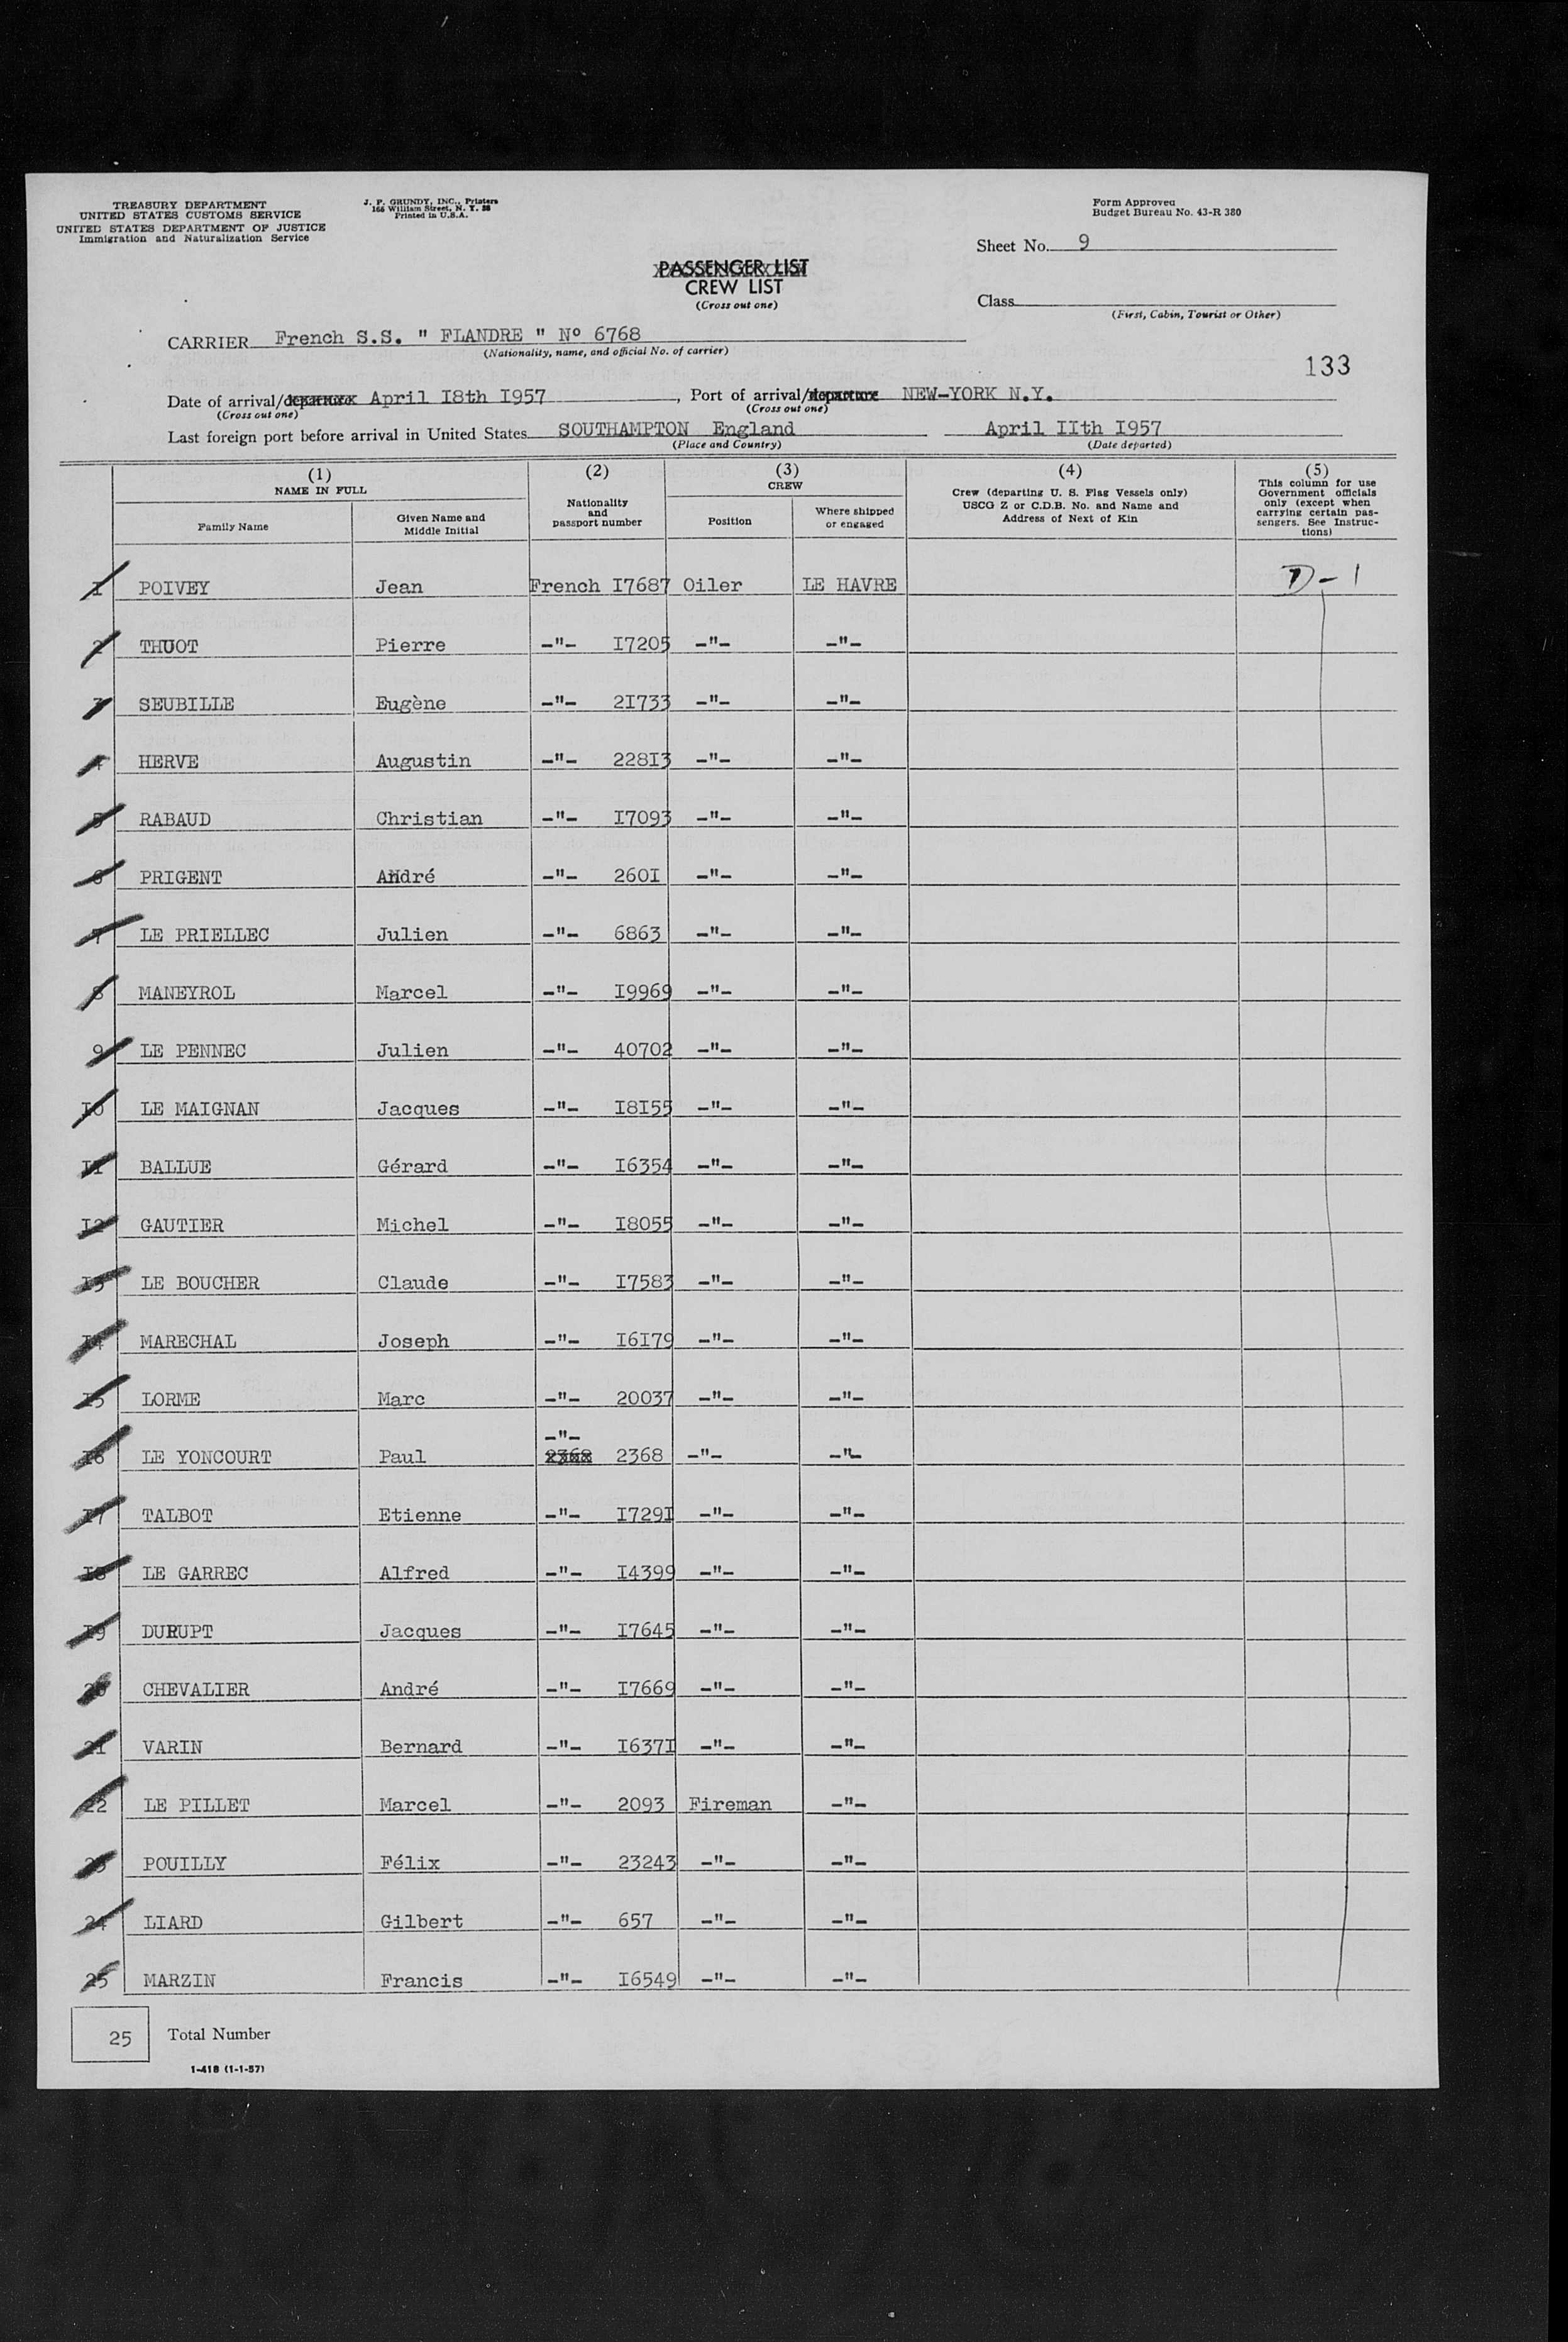 TREASURY DEPARTMENT
UNITED STATES CUSTOMS SERVICE
UNITED STATES DEPARTMENT OF JUSTICE
Immigration and Naturalization Service
J. P. GRUNDY, INC., Printers
166 William Street, N. Y. 38
Printed in U.S.A.
Form Approved
Budget Bureau No. 43-R 380
Sheet No. 9
PASSENGER LIST
CREW LIST
(Cross out one)
Class
(First, Cabin, Tourist or Other)
CARRIER French S.S. " FLANDRE " Nº 6768
(Nationality, name, and official No. of carrier)
133
Date of arrival/departure April I8th I957, Port of arrival/departure NEW-YORK N.Y.
(Cross out one) (Cross out one)
Last foreign port before arrival in United States SOUTHAMPTON England April IIth I957
(Place and Country) (Date departed)
(1) NAME IN FULL
Family Name
Given Name and Middle Initial
(2)
Nationality and passport number
(3) CREW
Position
Where shipped or engaged
(4)
Crew (departing U. S. Flag Vessels only)
USCG Z or C.D.B. No. and Name and
Address of Next of Kin
(5)
This column for use
Government officials
only (except when
carrying certain pas-
sengers. See Instruc-
tions)
I POIVEY Jean French I7687 Oiler LE HAVRE D-1
2 THUOT Pierre -"- I7205 -"- -"-
3 SEUBILLE Eugène -"- 2I733 -"- -"-
4 HERVE Augustin -"- 228I3 -"- -"-
5 RABAUD Christian -"- I7093 -"- -"-
6 PRIGENT André -"- 260I -"- -"-
7 LE PRIELLEC Julien -"- 6863 -"- -"-
8 MANEYROL Marcel -"- I9969 -"- -"-
9 LE PENNEC Julien -"- 40702 -"- -"-
I0 LE MAIGNAN Jacques -"- I8I55 -"- -"-
II BALLUE Gérard -"- I6354 -"- -"-
I2 GAUTIER Michel -"- I8055 -"- -"-
I3 LE BOUCHER Claude -"- I7583 -"- -"-
I4 MARECHAL Joseph -"- I6I79 -"- -"-
I5 LORME Marc -"- 20037 -"- -"-
-"-
I6 LE YONCOURT Paul 2368 2368 -"- -"-
I7 TALBOT Etienne -"- I729I -"- -"-
I8 LE GARREC Alfred -"- I4399 -"- -"-
I9 DURUPT Jacques -"- I7645 -"- -"-
20 CHEVALIER André -"- I7669 -"- -"-
21 VARIN Bernard -"- I637I -"- -"-
22 LE PILLET Marcel -"- 2093 Fireman -"-
23 POUILLY Félix -"- 23243 -"- -"-
24 LIARD Gilbert -"- 657 -"- -"-
25 MARZIN Francis -"- I6549 -"- -"-
25 Total Number
1-418 (1-1-57)